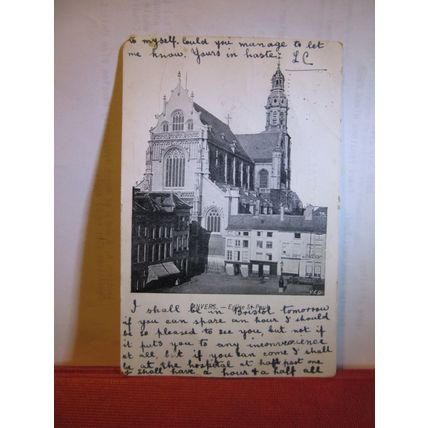 to myself. Could you manage to let
me know. Yours in haste. LC
ANVERS. — Eglise St-Paul
V.E.D.
I shall be in Bristol tomorrow
if you can spare an hour I should
be so pleased to see you, but not if
it puts you to any inconvenience
at all, but if you can come I shall
be at the hospital at half past one
I shall have a hour & a half all